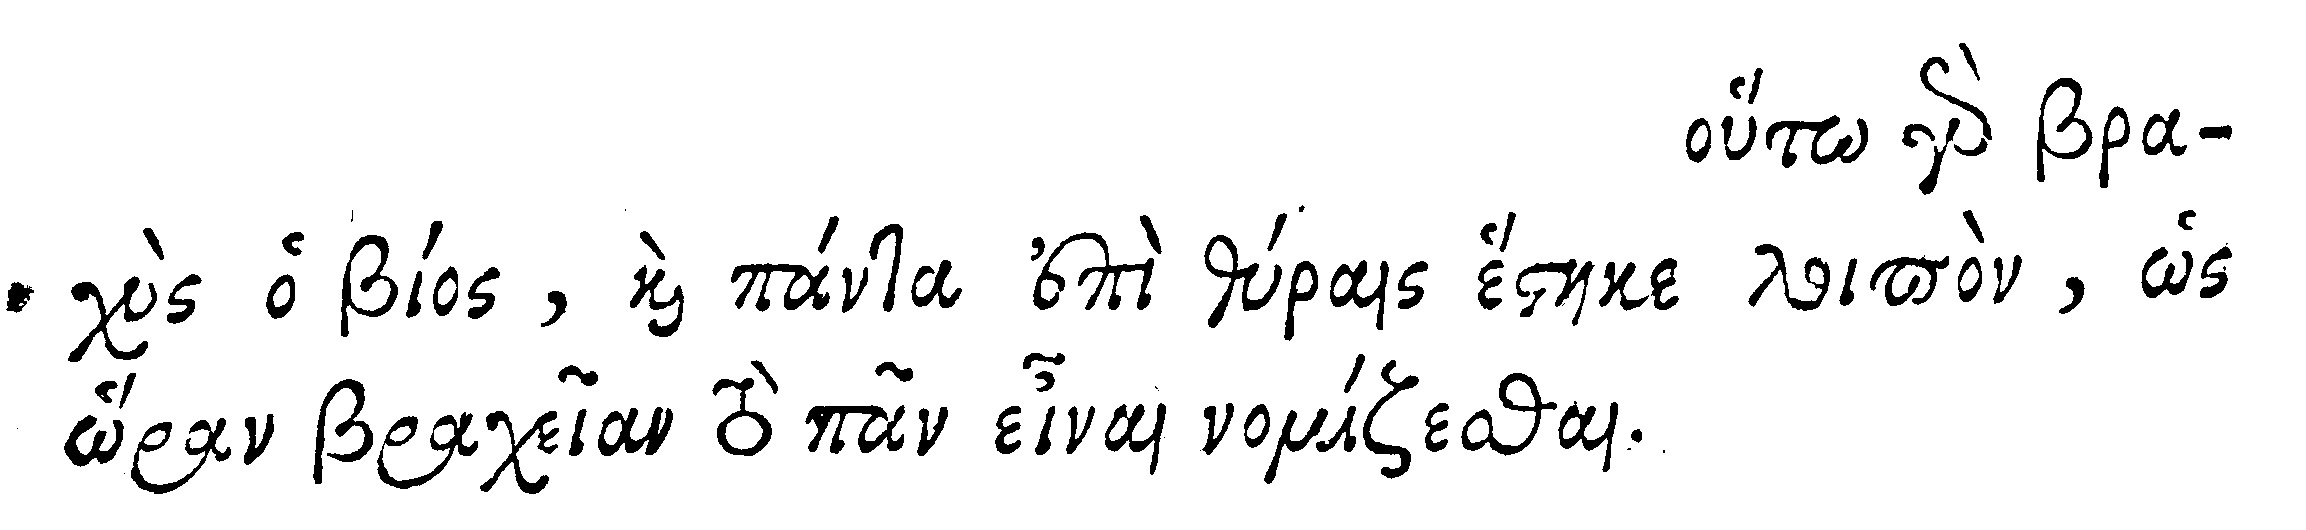 οὕτω γὰρ βρα-
χὺς ὁ βίος, ϗ̀ πάντα ἐπὶ θύραις ἕστηκε λοιπὸν, ὡς
ὥραν βραχεῖαν τὸ πᾶν εἶναι νομίζεσθαι.